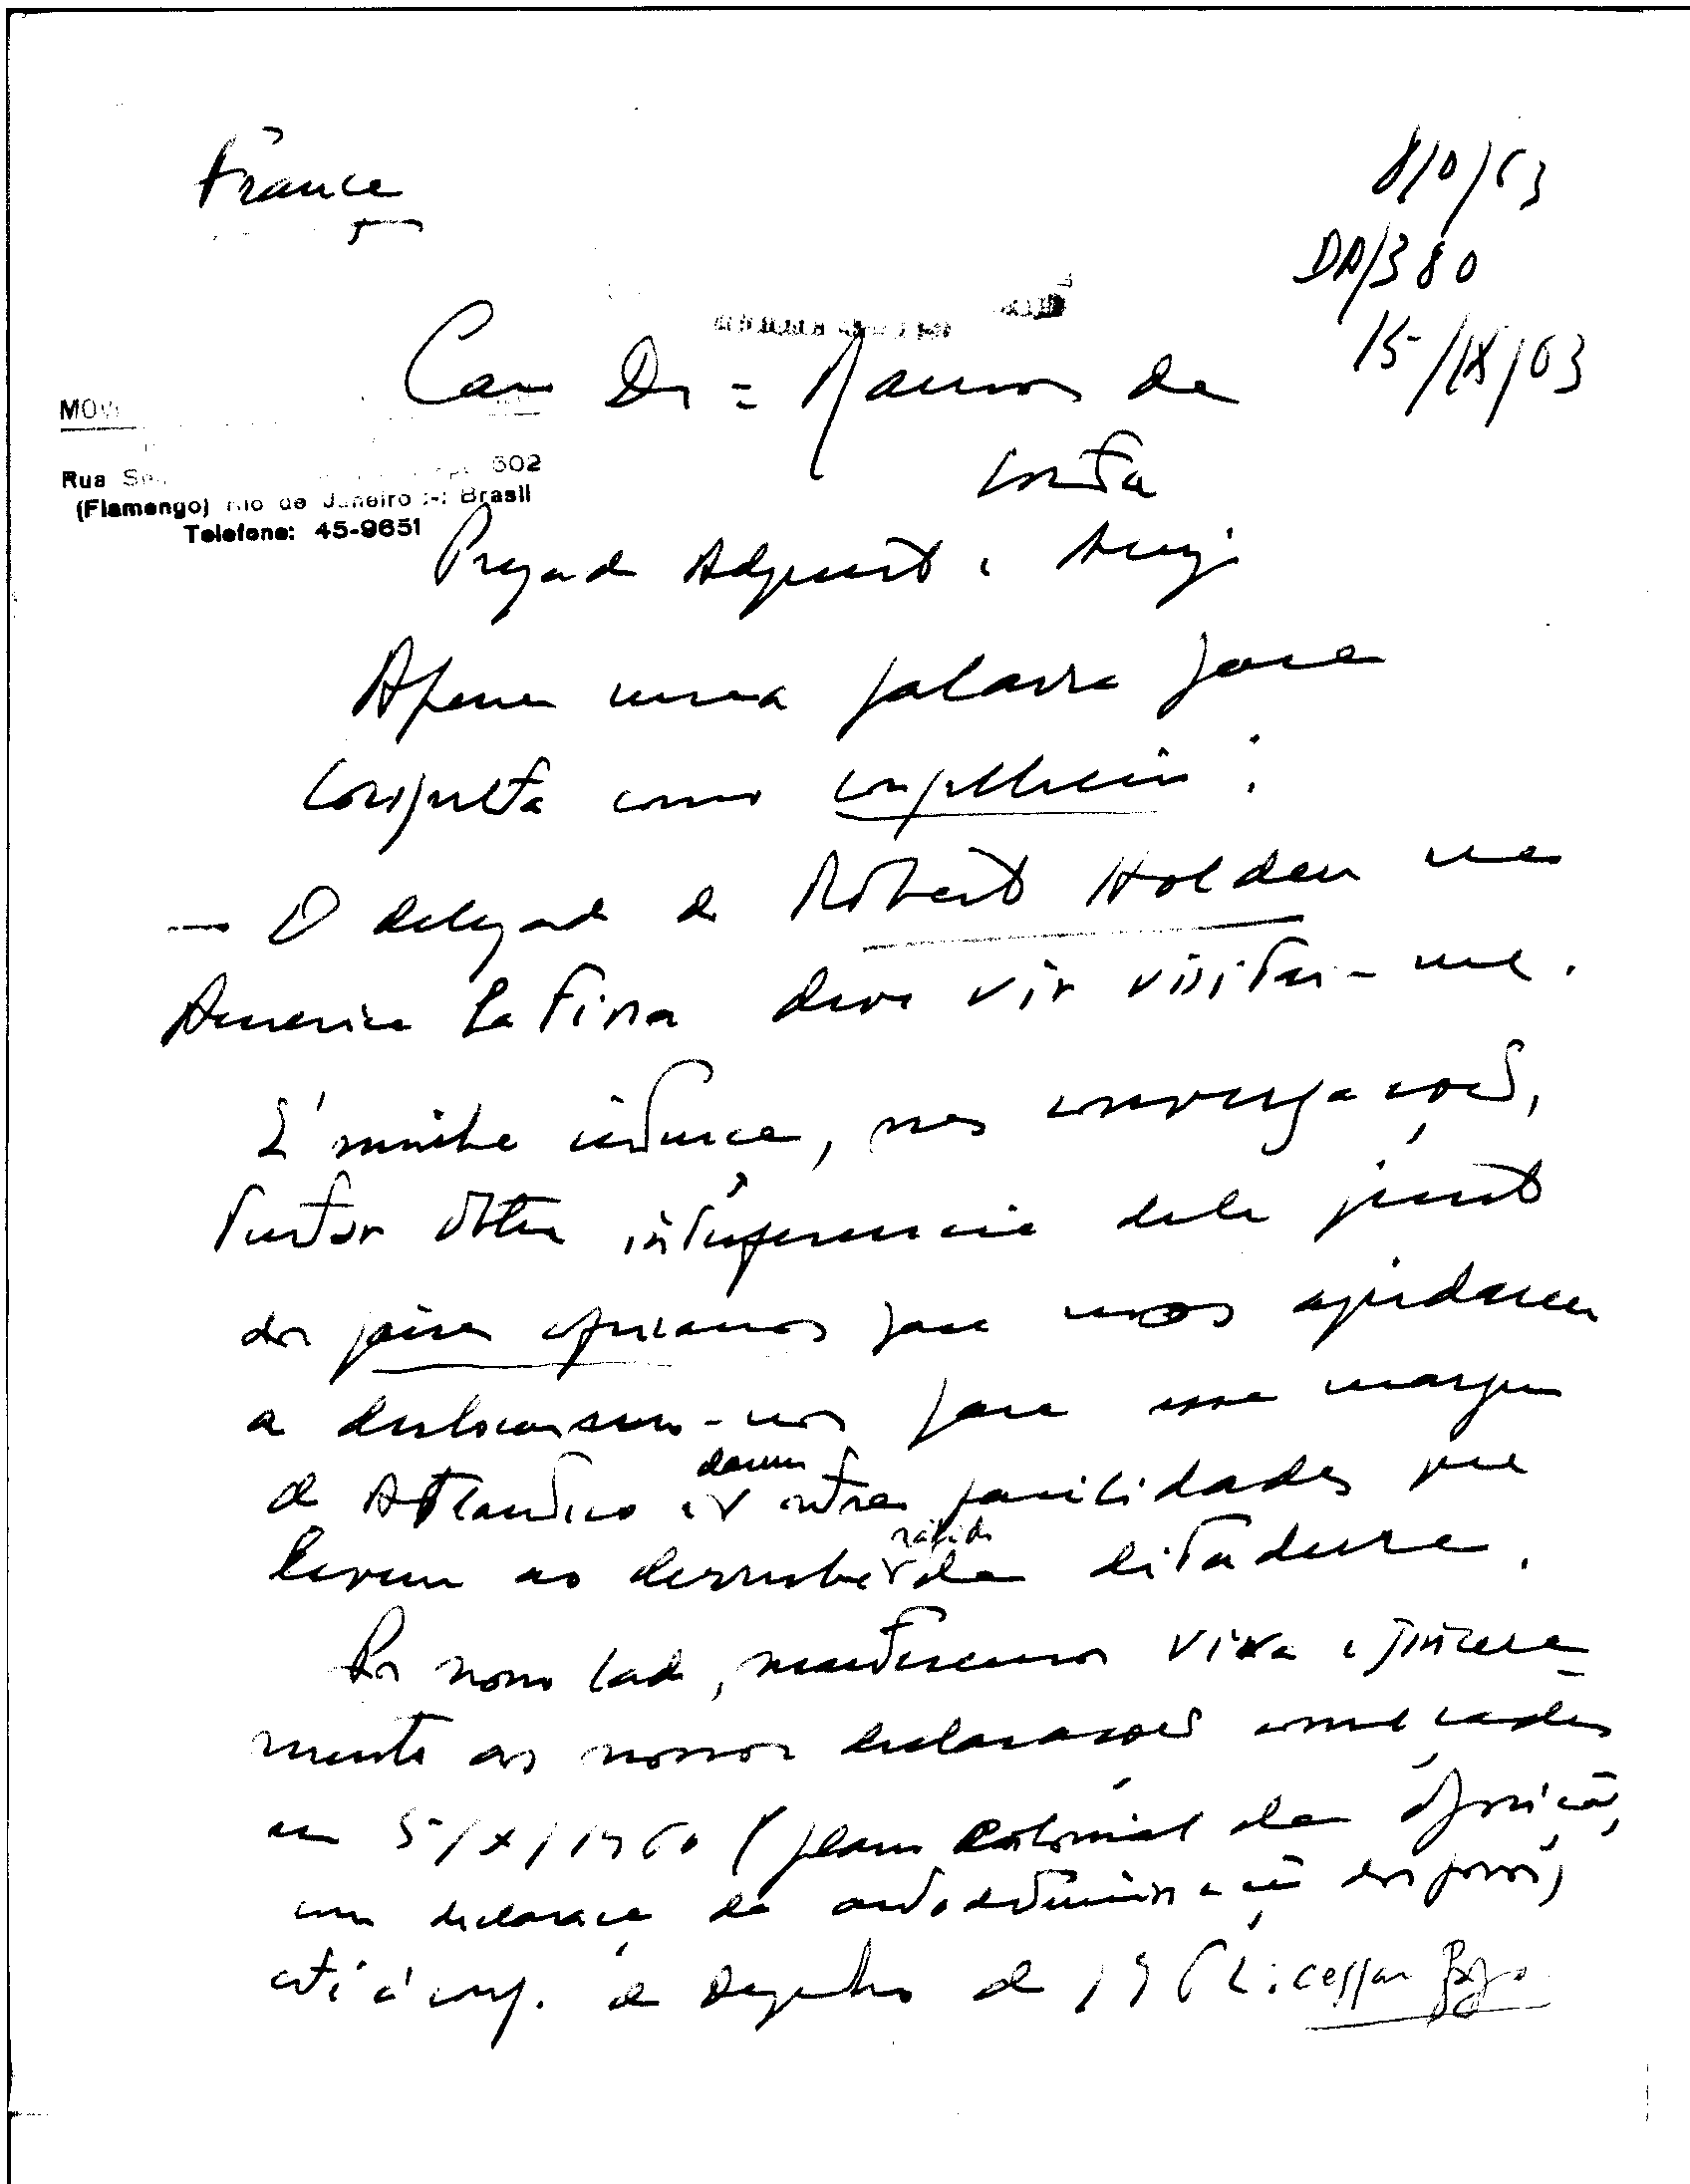 France
8/0/63
DA/380
15/IX/63
Caro Dr = Ramos da
Costa
MOV
Rua 602
(Flamengo) Rio de Janeiro :-: Brasil
Telefone: 45-9651
Prezado Adjunto e Amigo
Apenas uma palavra para
consulta como conselheiro:
— O delegado de Robert Holden na
America Latina deve vir visitar-me.
É minha ideia, nas conversações,
tentar obter interferencia dele junto
dos paises africanos para nos ajudarem
a deslocarmo-nos para essa margem
do Atlantico e darem outras facilidades que
levem ao derrube rápido da ditadura.
Por nosso lado, manteremos viva e sincera-
mente as nossas declarações começadas
em 5/X/1960 (plano colonial da Oposição,
com declaração da autodeterminação dos povos)
até à conf. de Dezembro de 1962: cessar fogo